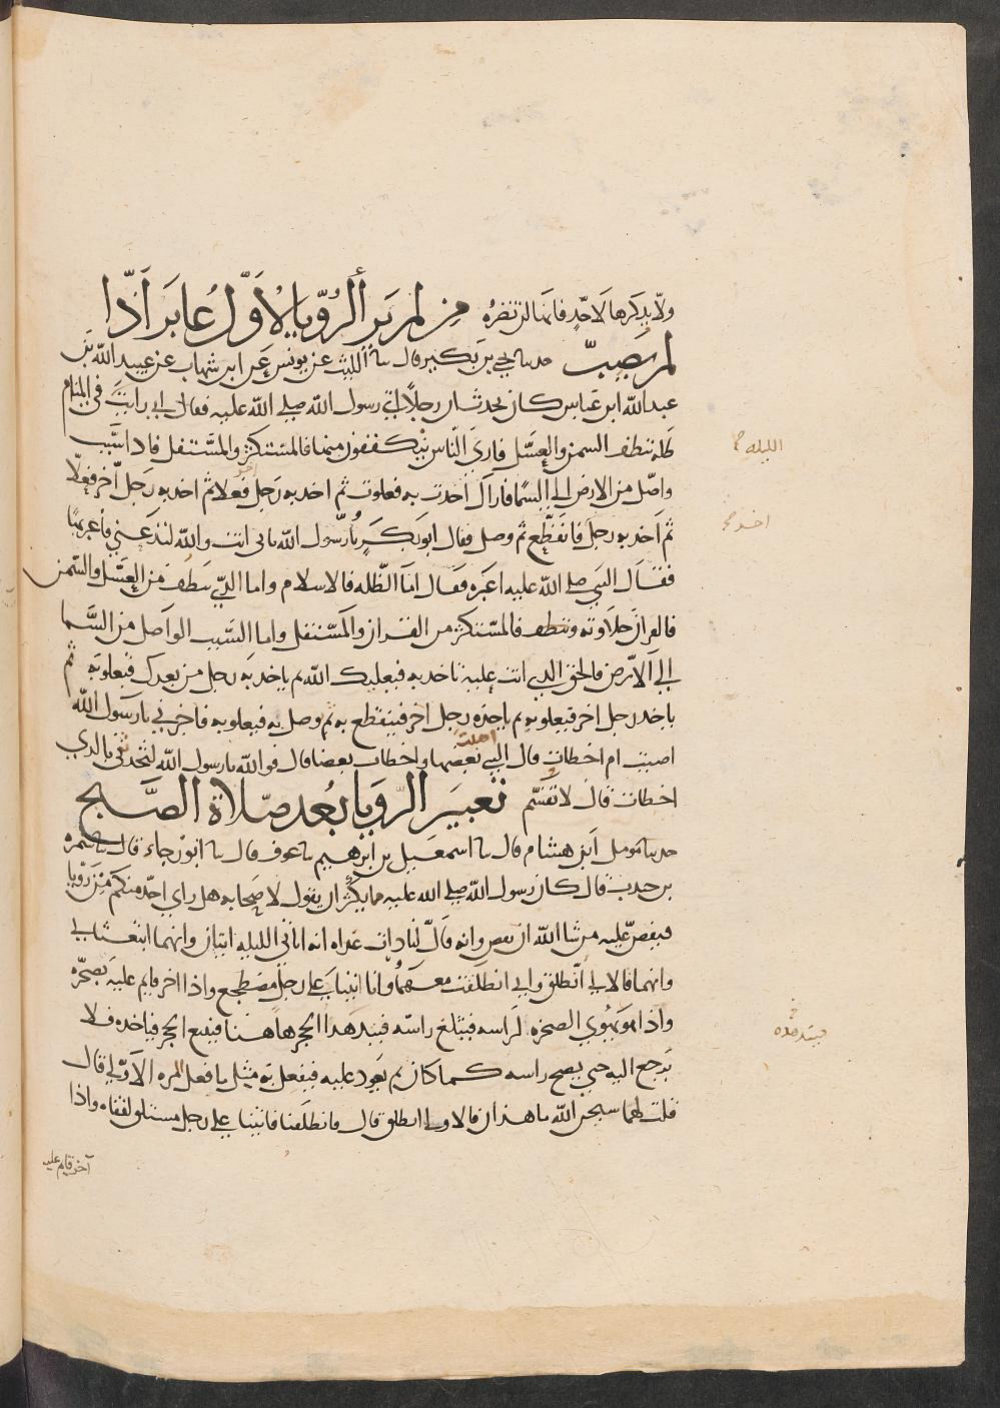 ولا يذكرها لاحد فانها لن تضره من لم ير الرويا لاول عابر اذا
لم يصب حدثنا يحيى بن بكير قال نا الليث عن يونس عن ابن شهاب عن عبيد الله بن
عبد الله ابن عباس كان يحدث ان رجلا اتى رسول الله صلى الله عليه فقال اني رايت في المنام
ظله تنطف السمن والعسل فارى الناس يتكففون منها فالمستكثر والمستقل فاذا سبب
واصل من الارض الى السما فاراك اخذت به فعلوت ثم اخذ به رجل فعلا ثم اخذ به رجل اخر فعلا
ثم اخذ به رجل فانقطع ثم وصل فقال ابو بكر يا رسول الله بابي انت والله لتدعني فاعبرها
فقال النبي صلى الله عليه اعبره فقال اما الظله فالاسلام واما الذي ينطف من العسل والسمن
فالقران حلاوته وتنطف فالمستكثر من القران والمستقل واما السبب الواصل من السما
الى الارض فالحق الذي انت عليه تاخذ به فيعليك الله ثم ياخذ به رجل من بعدك فيعلو به ثم
ياخذ رجل اخر فيعلو به ثم ياخذه رجل اخر فينقطع به ثم وصل به فيعلو به فاخبرني يا رسول الله
اصبت ام اخطات قال النبي بعضها واخطات بعضا قال فوالله يا رسول الله لتحدثني بالذي
اخطات قال لا تقسم تعبير الرويا بعد صلاة الصبح
حدثنا مومل ابن هشام قال نا اسمعيل بن ابرهيم نا عوف قال نا ابو رجاء قال نا سمره
بن جندب قال كان رسول الله صلى الله عليه مما يكثر ان يقول لاصحابه هل راى احد منكم من رويا
فيقص عليه من شا الله ان يقص وانه قال لنا ذات غداه انه اتاني الليله اتيان وانهما ابتعثاني
وانهما قالا لي انطلق واني انطلقت معهما وانا اتينا على رجل مضطجع واذا اخر قايم عليه بصخره
واذا هو يهوي الصخره لراسه فيثلغ راسه فيتدهدا الحجر هاهنا فيتبع الحجر فياخذه فلا
يرجع اليه حتى يصح راسه كما كان ثم يعود عليه فيفعل به مثل ما فعل المره الاولى قال
قلت لهما سبحن الله ما هذان قالا لي انطلق قال فانطلقنا فاتينا على رجل مستلق لقفاه واذا
آخر قايم عليه
الليله
اخذ
فيتدهده